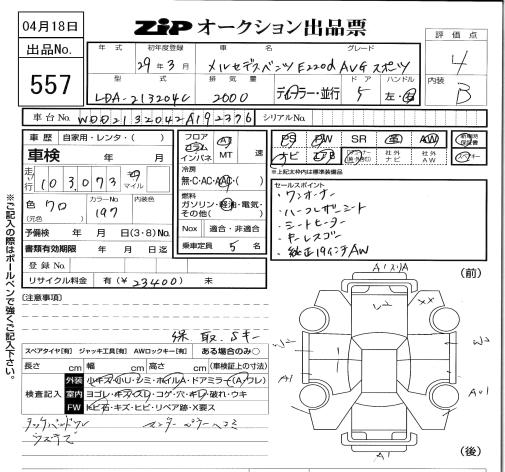 04月18日
ZiP オークション出品票
評価点
4
出品No.
557
年式
初年度登録
車名
グレード
29年3月
メルセデスベンツ E220d AVG スポーツ
型式
排気量
ドア
ハンドル
LDA-213204C
2000
ディーラー・並行
5
左・右
内装
B
車台No.
WDD2132042A192376
シリアルNo.
車歴
自家用・レンタ( )
車検
年 月
走行
103,073
マイル
色
クロ
(元色)
カラーNo
197
内装色
予備検
年 月 日(3・8)No.
書類有効期限
年 月 日
登録No.
リサイクル料金
有(¥ 23400 ) 未
フロア
コラム
インパネ
AT
MT
速
冷房
無・C・AC・AAC( )
燃料
ガソリン・軽油・電気・
その他( )
Nox
適合・非適合
乗車定員
5
名
PS
PW
SR
革
AW
ナビ
TV
※上記太枠内は標準装備品
セールスポイント
・ワンオーナー
・ハーフレザーシート
・シートヒーター
・キーレスゴー
・純正19インチAW
(注意事項)
保 取 Sキー
スペアタイヤ[有] ジャッキ工具[有] AWロックキー[有] ある場合のみ○
長さ cm 幅 cm 高さ cm (車検証上の寸法)
検査記入
外装
小キズ・小リ・シミ・ホイルA・ドアミラー(A・ワレ)
室内
ヨゴレ・キズ・スレ・コゲ・穴・キレ・破れ・ウキ
FW
トビ石・キズ・ヒビ・リペア跡・X要ス
タッチペン
ウスキズ
センターピラーヘコミ
※ご記入の際はボールペンで強くご記入下さい。
(前)
XX
W2
A1
(後)
A1